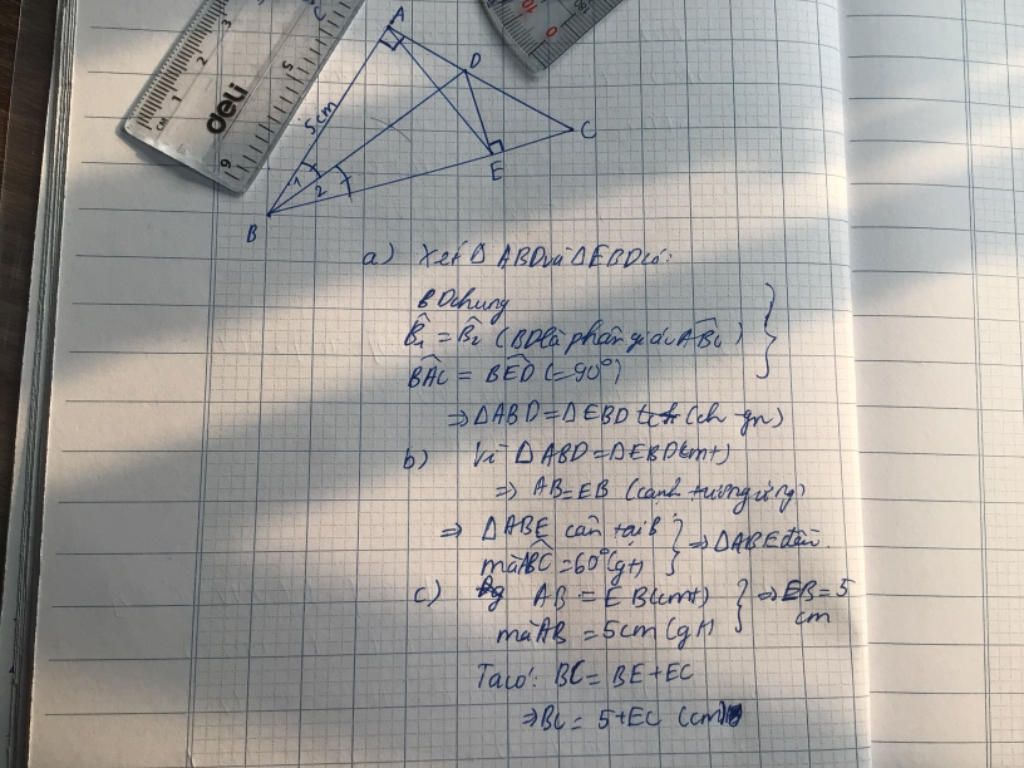 3
2
1
CM
deli
5
6
C
10
0
80
A
D
C
E
B
5cm
1
2
a) Xét Δ ABD và Δ EBD có:
BD chung
B̂₁ = B̂₂ (BD là phân giác ABC)
BAC = BED (=90°)
⇒ ΔABD = ΔEBD (ch-gn)
b) Vì ΔABD = ΔEBD (cmt)
⇒ AB = EB (cạnh tương ứng)
⇒ ΔABE cân tại B
mà ABC = 60° (gt) ⇒ ΔABE đều.
c) AB = EB (cmt) ⇒ EB = 5
cm
mà AB = 5cm (gt)
Ta có: BC = BE + EC
⇒ BC = 5 + EC (cm)